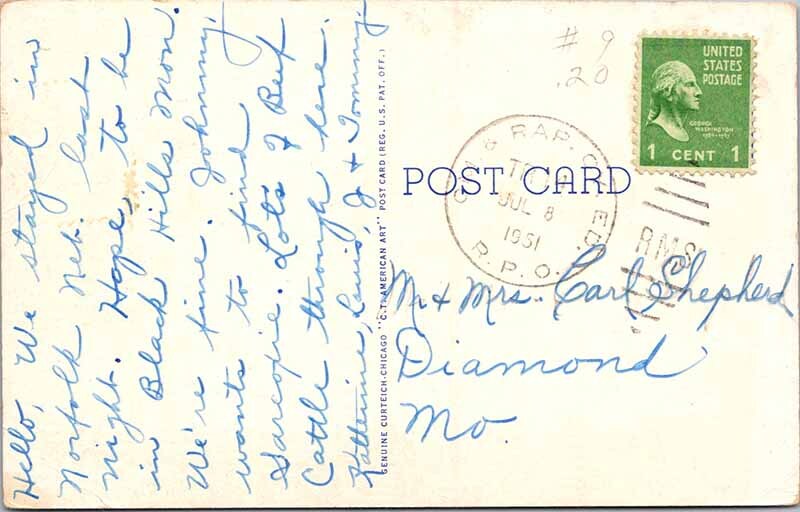 Hello, We stayed in
Norfolk Neb. last
night. Hope, to be
in Black Hills Mon.
We're fine. Johnny,
wants to find
Sarcopie. Lots of Beef
Cattle through here.
Katherine, Louis, J + Tommy.
GENUINE CURTEICH-CHICAGO "C.T. AMERICAN ART" POST CARD (REG. U.S. PAT. OFF.)
# 9
.20
UNITED
STATES
POSTAGE
GEORGE
WASHINGTON
1789-1797
1 CENT 1
POST CARD
& RAP. C
JUL 8
1951
R.P.O.
RMS
Mr + Mrs. Carl Shepherd
Diamond
Mo.